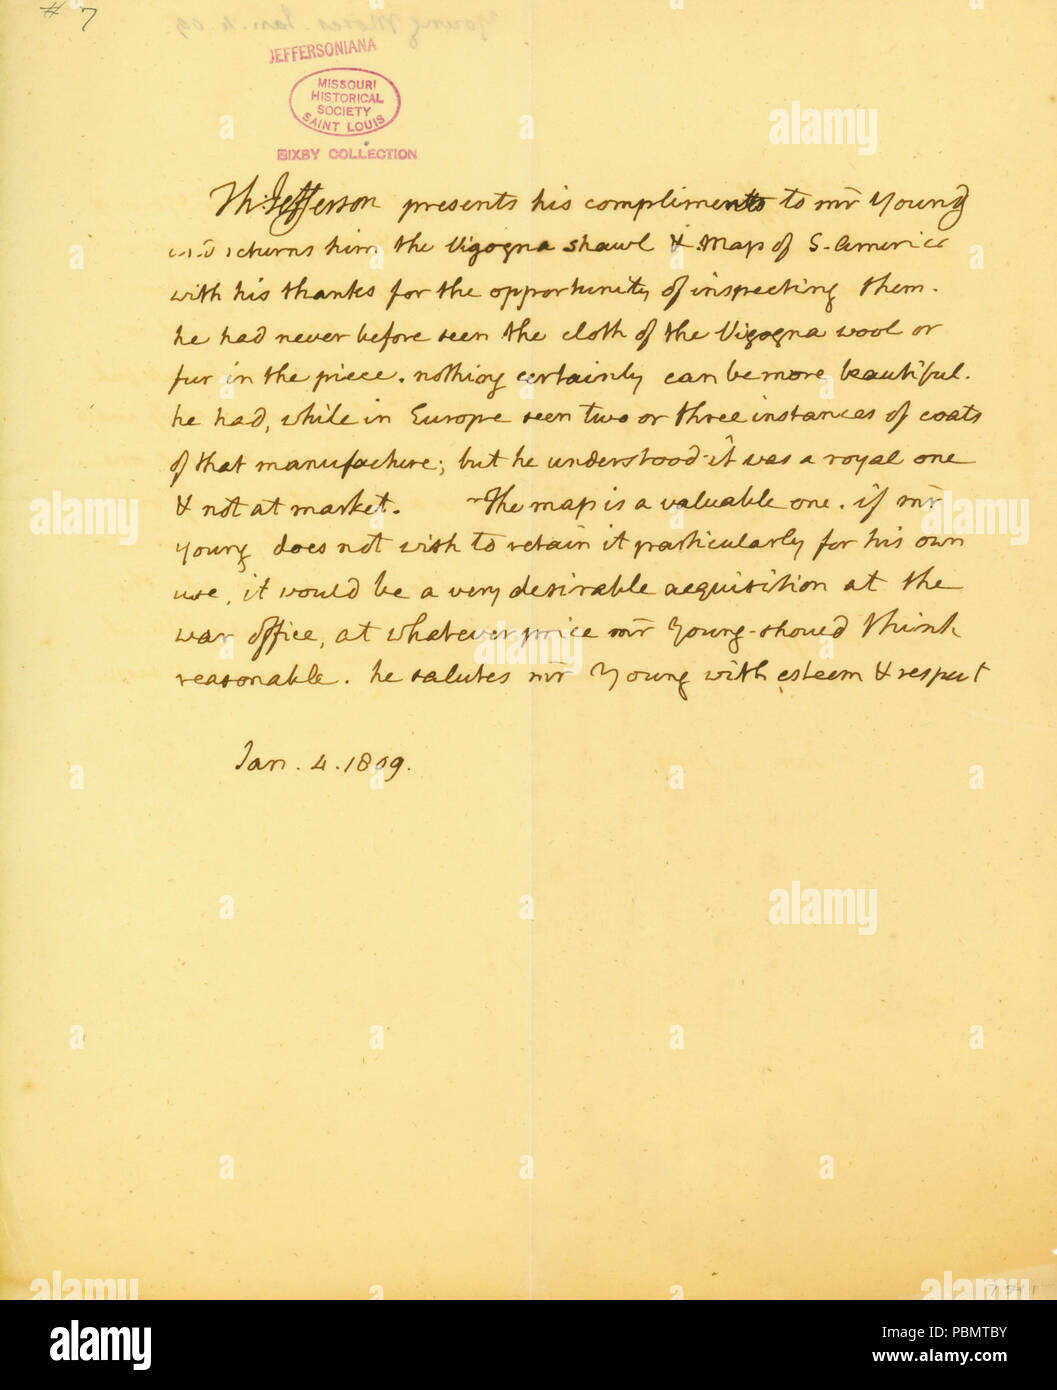 # 7
Young Moses. Jan. 4. 09
JEFFERSONIANA
MISSOURI
HISTORICAL
SOCIETY
SAINT LOUIS
BIXBY COLLECTION
Th: Jefferson presents his compliments to mr Young
and returns him the Vigogna shawl & Map of S. America
with his thanks for the opportunity of inspecting them.
he had never before seen the cloth of the Vigogna wool or
fur in the piece. nothing certainly can be more beautiful.
he had, while in Europe seen two or three instances of coats
of that manufacture; but he understood it was a royal one
& not at market. The map is a valuable one. if mr
Young does not wish to retain it particularly for his own
use, it would be a very desirable acquisition at the
war office, at whatever price mr Young should think
reasonable. he salutes mr Young with esteem & respect
Jan. 4. 1809.
alamy
Image ID: PBMTBY
www.alamy.com